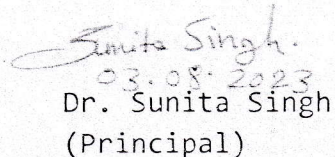 Sunita Singh.
03.08.2023
Dr. Sunita Singh
(Principal)